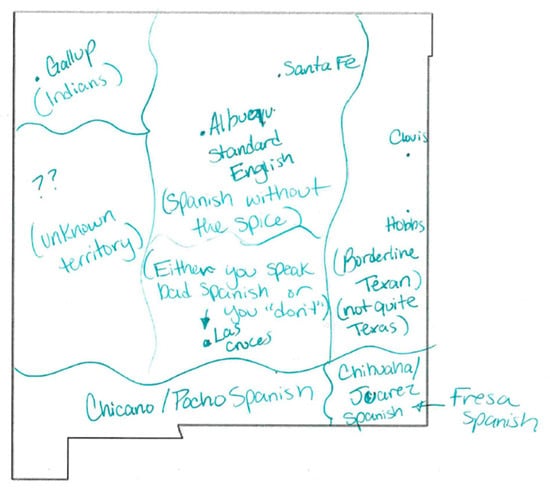 Gallup
(Indians)
Santa Fe
Albuequ.
Standard
English
(Spanish without
the spice)
Clovis
Hobbs
(Borderline
Texan)
(not quite
Texas)
??
(unknown
territory)
(Either you speak
bad Spanish or
you "don't")
Las
Cruces
Chicano/Pocho Spanish
Chihuaha/
Juarez
Spanish
Fresa
Spanish